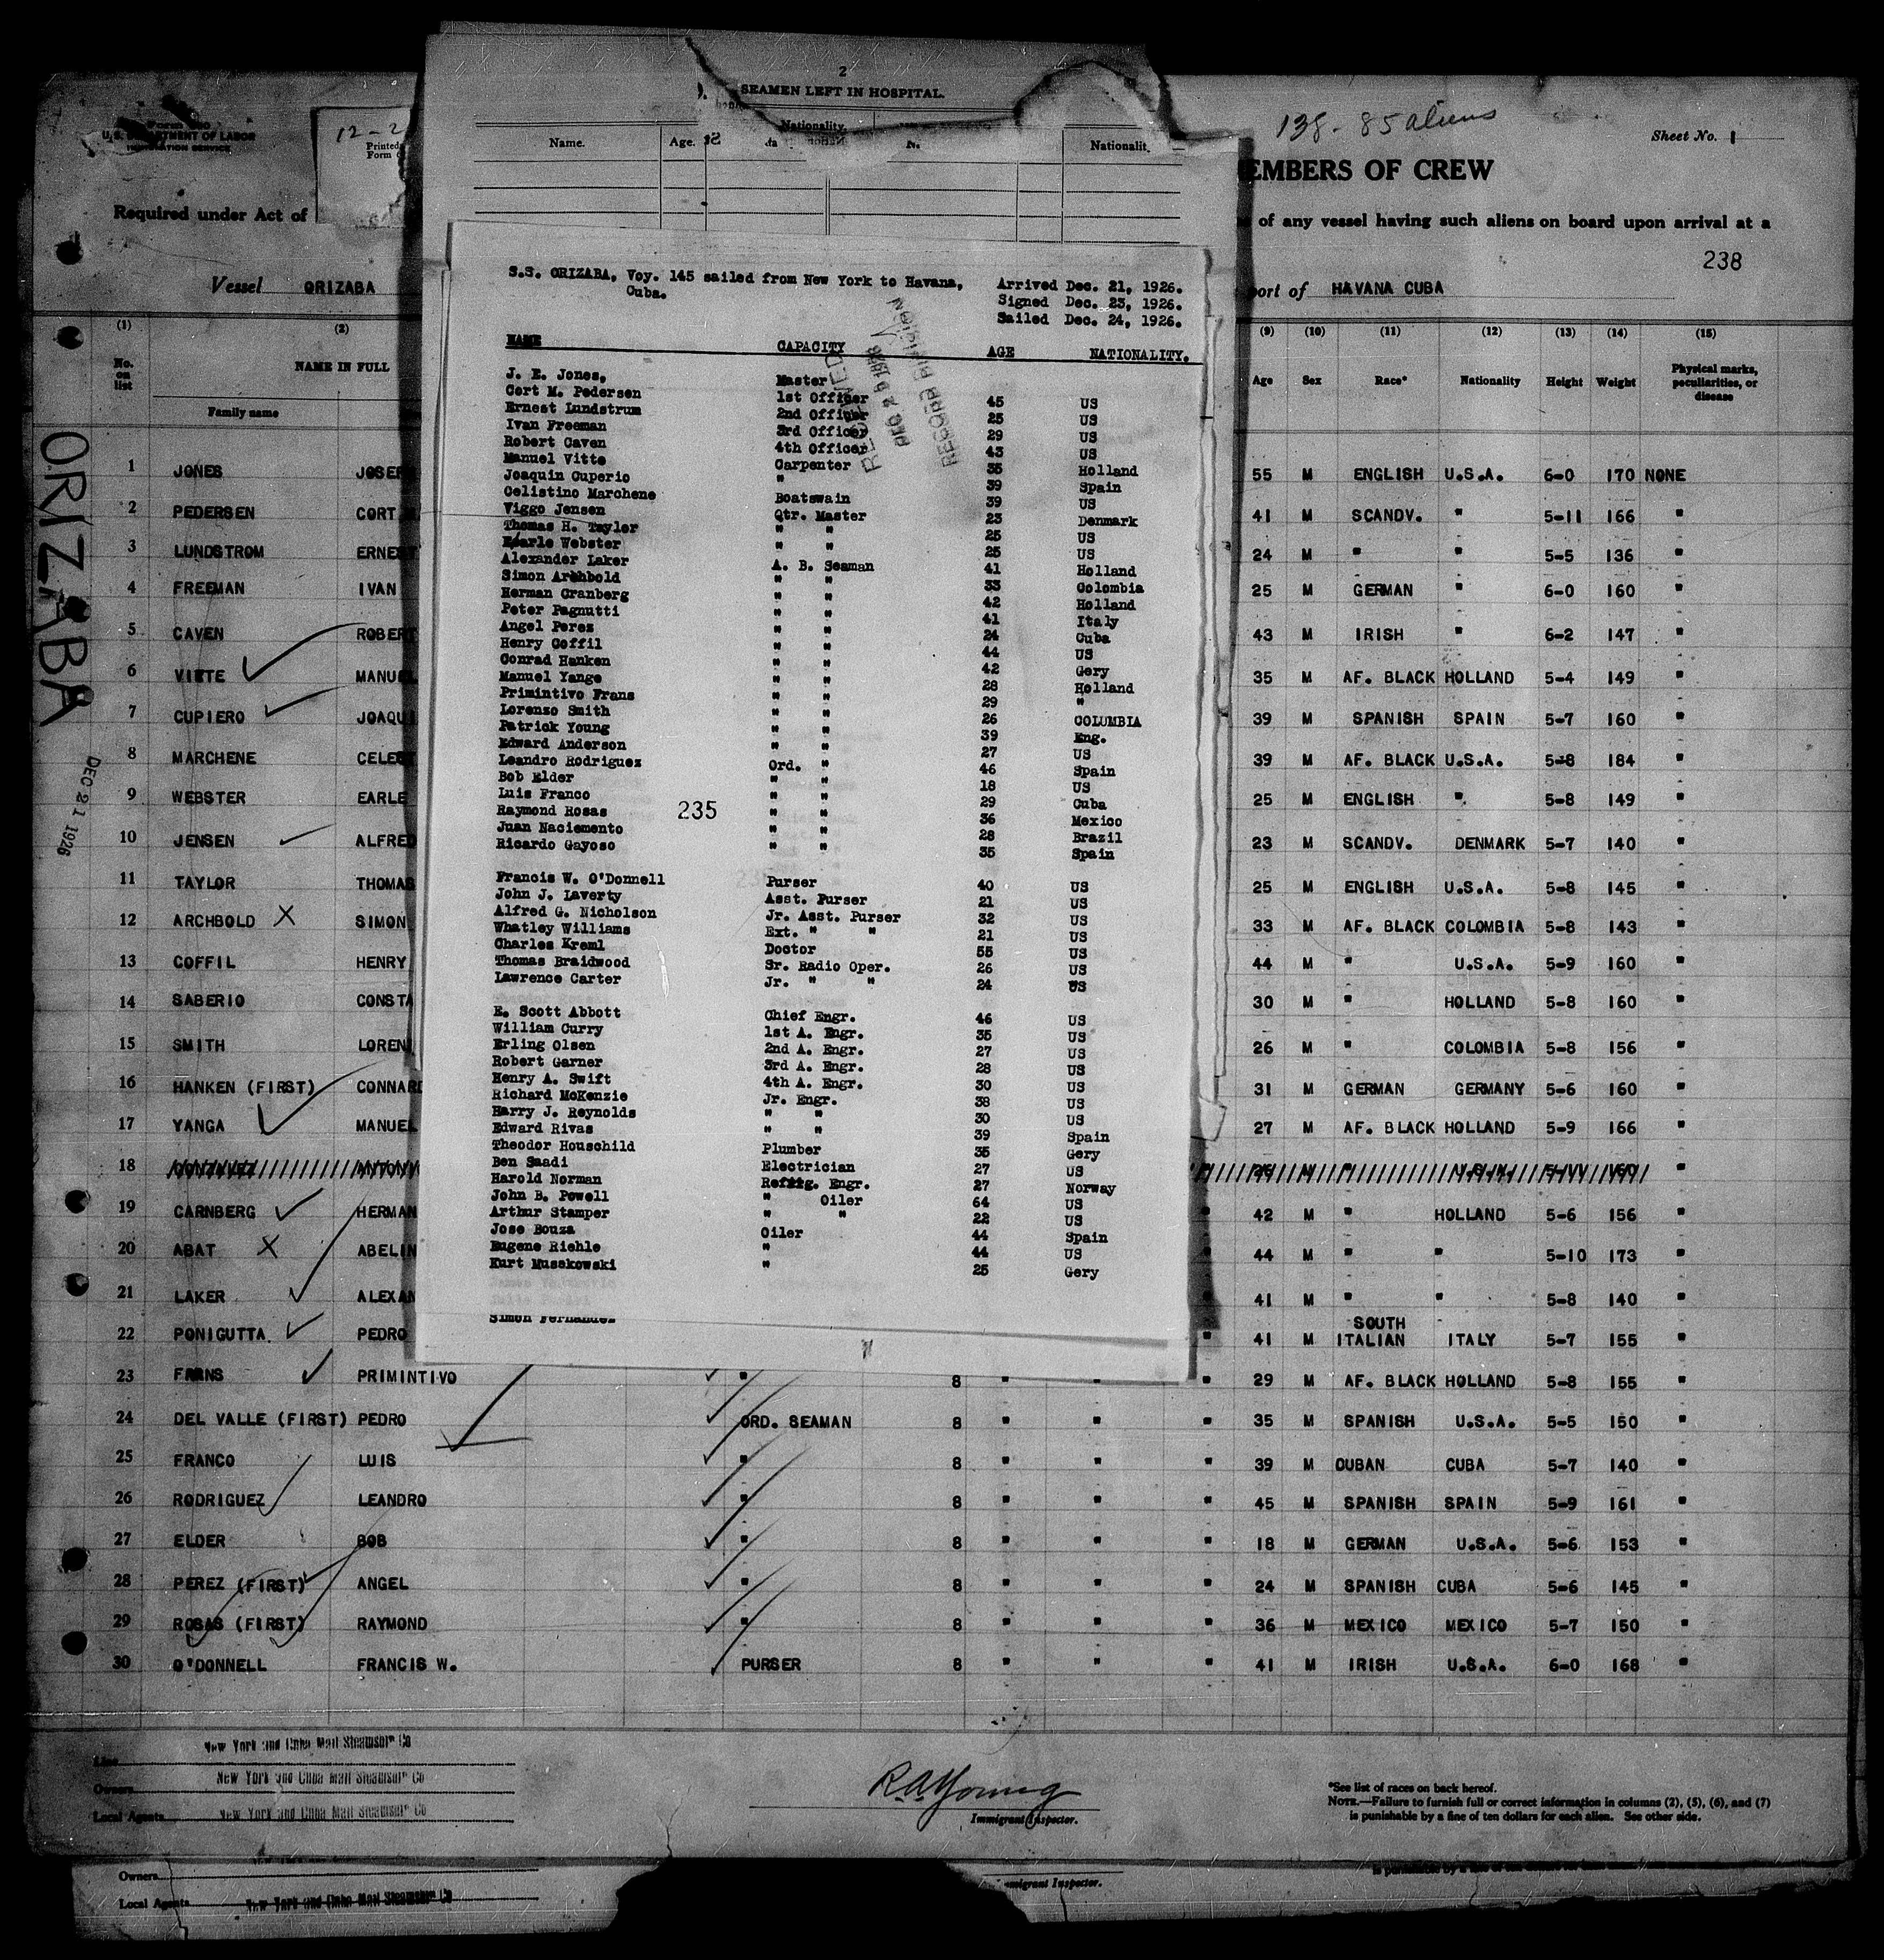 2
SEAMEN LEFT IN HOSPITAL.
Name. Age. Nationality. Nationalit
12-2
Printed
Form
U.S. DEPARTMENT OF LABOR
IMMIGRATION SERVICE
138 - 85 aliens
Sheet No. 1
EMBERS OF CREW
Required under Act of
of any vessel having such aliens on board upon arrival at a
238
Vessel ORIZABA
port of HAVANA CUBA
S.S. ORIZABA, Voy. 145 sailed from New York to Havana,
Cuba.
Arrived Dec. 21, 1926.
Signed Dec. 23, 1926.
Sailed Dec. 24, 1926.
RECEIVED
RECORD DIVISION
NAME CAPACITY AGE NATIONALITY.
J. E. Jones, Master
Cort M. Pedersen 1st Officer 45 US
Ernest Lundstrum 2nd Officer 25 US
Ivan Freeman 3rd Officer 29 US
Robert Caven 4th Officer 43 US
Manuel Vitte Carpenter 35 Holland
Joaquin Cuperio " 39 Spain
Celistino Marchene Boatswain 39 US
Viggo Jensen Qtr. Master 23 Denmark
Thomas H. Taylor " " 25 US
Earle Webster " " 25 US
Alexander Laker A. B. Seaman 41 Holland
Simon Archbold " " 33 Colombia
Herman Cranberg " " 42 Holland
Peter Pagnutti " " 41 Italy
Angel Perez " " 24 Cuba
Henry Coffil " " 44 US
Conrad Hanken " " 42 Gery
Manuel Yange " " 28 Holland
Primintivo Frans " " 29 "
Lorenzo Smith " " 26 COLUMBIA
Patrick Young " " 39 Eng.
Edward Anderson " " 27 US
Leandro Rodriguez Ord. " 46 Spain
Bob Elder " " 18 US
Luis Franco " " 29 Cuba
Raymond Rosas 235 " " 36 Mexico
Juan Naciemento " " 28 Brazil
Ricardo Gayoso " " 35 Spain
Francis W. O'Donnell Purser 40 US
John J. Laverty Asst. Purser 21 US
Alfred G. Nicholson Jr. Asst. Purser 32 US
Whatley Williams Ext. " " 21 US
Charles Kreml Doctor 55 US
Thomas Braidwood Sr. Radio Oper. 26 US
Lawrence Carter Jr. " " 24 US
E. Scott Abbott Chief Engr. 46 US
William Curry 1st A. Engr. 35 US
Erling Olsen 2nd A. Engr. 27 US
Robert Garner 3rd A. Engr. 28 US
Henry A. Swift 4th A. Engr. 30 US
Richard McKenzie Jr. Engr. 38 US
Harry J. Reynolds " " 30 US
Edward Rivas " " 39 Spain
Theodor Houschild Plumber 35 Gery
Ben Saadi Electrician 27 US
Harold Norman Refrig. Engr. 27 Norway
John B. Powell " Oiler 64 US
Arthur Stamper " " 22 US
Jose Bouza Oiler 44 Spain
Eugene Riehle " 44 US
Kurt Musakowski " 25 Gery
Simon Fernandez
(1) (2) (9) (10) (11) (12) (13) (14) (15)
No. on list NAME IN FULL Age Sex Race* Nationality Height Weight Physical marks, peculiarities, or disease
Family name
ORIZABA
DEC 21 1926
1 JONES JOSEP 55 M ENGLISH U.S.A. 6-0 170 NONE
2 PEDERSEN CORT 41 M SCANDV. " 5-11 166 "
3 LUNDSTROM ERNEST 24 M " " 5-5 136 "
4 FREEMAN IVAN 25 M GERMAN " 6-0 160 "
5 CAVEN ROBERT 43 M IRISH " 6-2 147 "
6 VITTE MANUEL 35 M AF. BLACK HOLLAND 5-4 149 "
7 CUPIERO JOAQUI 39 M SPANISH SPAIN 5-7 160 "
8 MARCHENE CELEST 39 M AF. BLACK U.S.A. 5-8 184 "
9 WEBSTER EARLE 25 M ENGLISH " 5-8 149 "
10 JENSEN ALFRED 23 M SCANDV. DENMARK 5-7 140 "
11 TAYLOR THOMAS 25 M ENGLISH U.S.A. 5-8 145 "
12 ARCHBOLD X SIMON 33 M AF. BLACK COLOMBIA 5-8 143 "
13 COFFIL HENRY 44 M " U.S.A. 5-9 160 "
14 SABERIO CONSTA 30 M " HOLLAND 5-8 160 "
15 SMITH LOREN 26 M " COLOMBIA 5-8 156 "
16 HANKEN (FIRST) CONNARD 31 M GERMAN GERMANY 5-6 160 "
17 YANGA MANUEL 27 M AF. BLACK HOLLAND 5-9 166 "
18
19 CARNBERG HERMAN " 42 M " HOLLAND 5-6 156 "
20 ABAT X ABELIN " 44 M " " 5-10 173 "
21 LAKER ALEXAN " 41 M " " 5-8 140 "
22 PONIGUTTA PEDRO " 41 M SOUTH ITALIAN ITALY 5-7 155 "
23 FRANS PRIMINTIVO " 8 " " " 29 M AF. BLACK HOLLAND 5-8 155 "
24 DEL VALLE (FIRST) PEDRO ORD. SEAMAN 8 " " " 35 M SPANISH U.S.A. 5-5 150 "
25 FRANCO LUIS " 8 " " " 39 M CUBAN CUBA 5-7 140 "
26 RODRIGUEZ LEANDRO " 8 " " " 45 M SPANISH SPAIN 5-9 161 "
27 ELDER BOB " 8 " " " 18 M GERMAN U.S.A. 5-6 153 "
28 PEREZ (FIRST) ANGEL " 8 " " " 24 M SPANISH CUBA 5-6 145 "
29 ROSAS (FIRST) RAYMOND " 8 " " " 36 M MEXICO MEXICO 5-7 150 "
30 O'DONNELL FRANCIS W. PURSER 8 " " " 41 M IRISH U.S.A. 6-0 168 "
Line New York and Cuba Mail Steamship Co
Owners New York and Cuba Mail Steamship Co
Local Agents New York and Cuba Mail Steamship Co
R.A. Young
Immigrant Inspector.
*See list of races on back hereof.
NOTE.—Failure to furnish full or correct information in columns (2), (5), (6), and (7)
is punishable by a fine of ten dollars for each alien. See other side.
Owners
Local Agents New York and Cuba Mail Steamship Co
Immigrant Inspector.